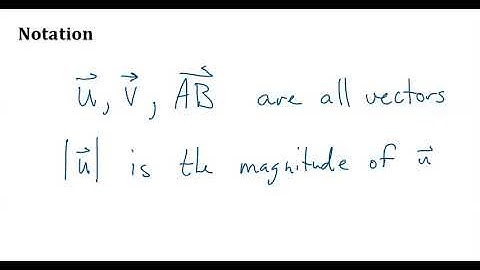 Notation
u⃗, v⃗, A⃗B⃗ are all vectors
|u⃗| is the magnitude of u⃗